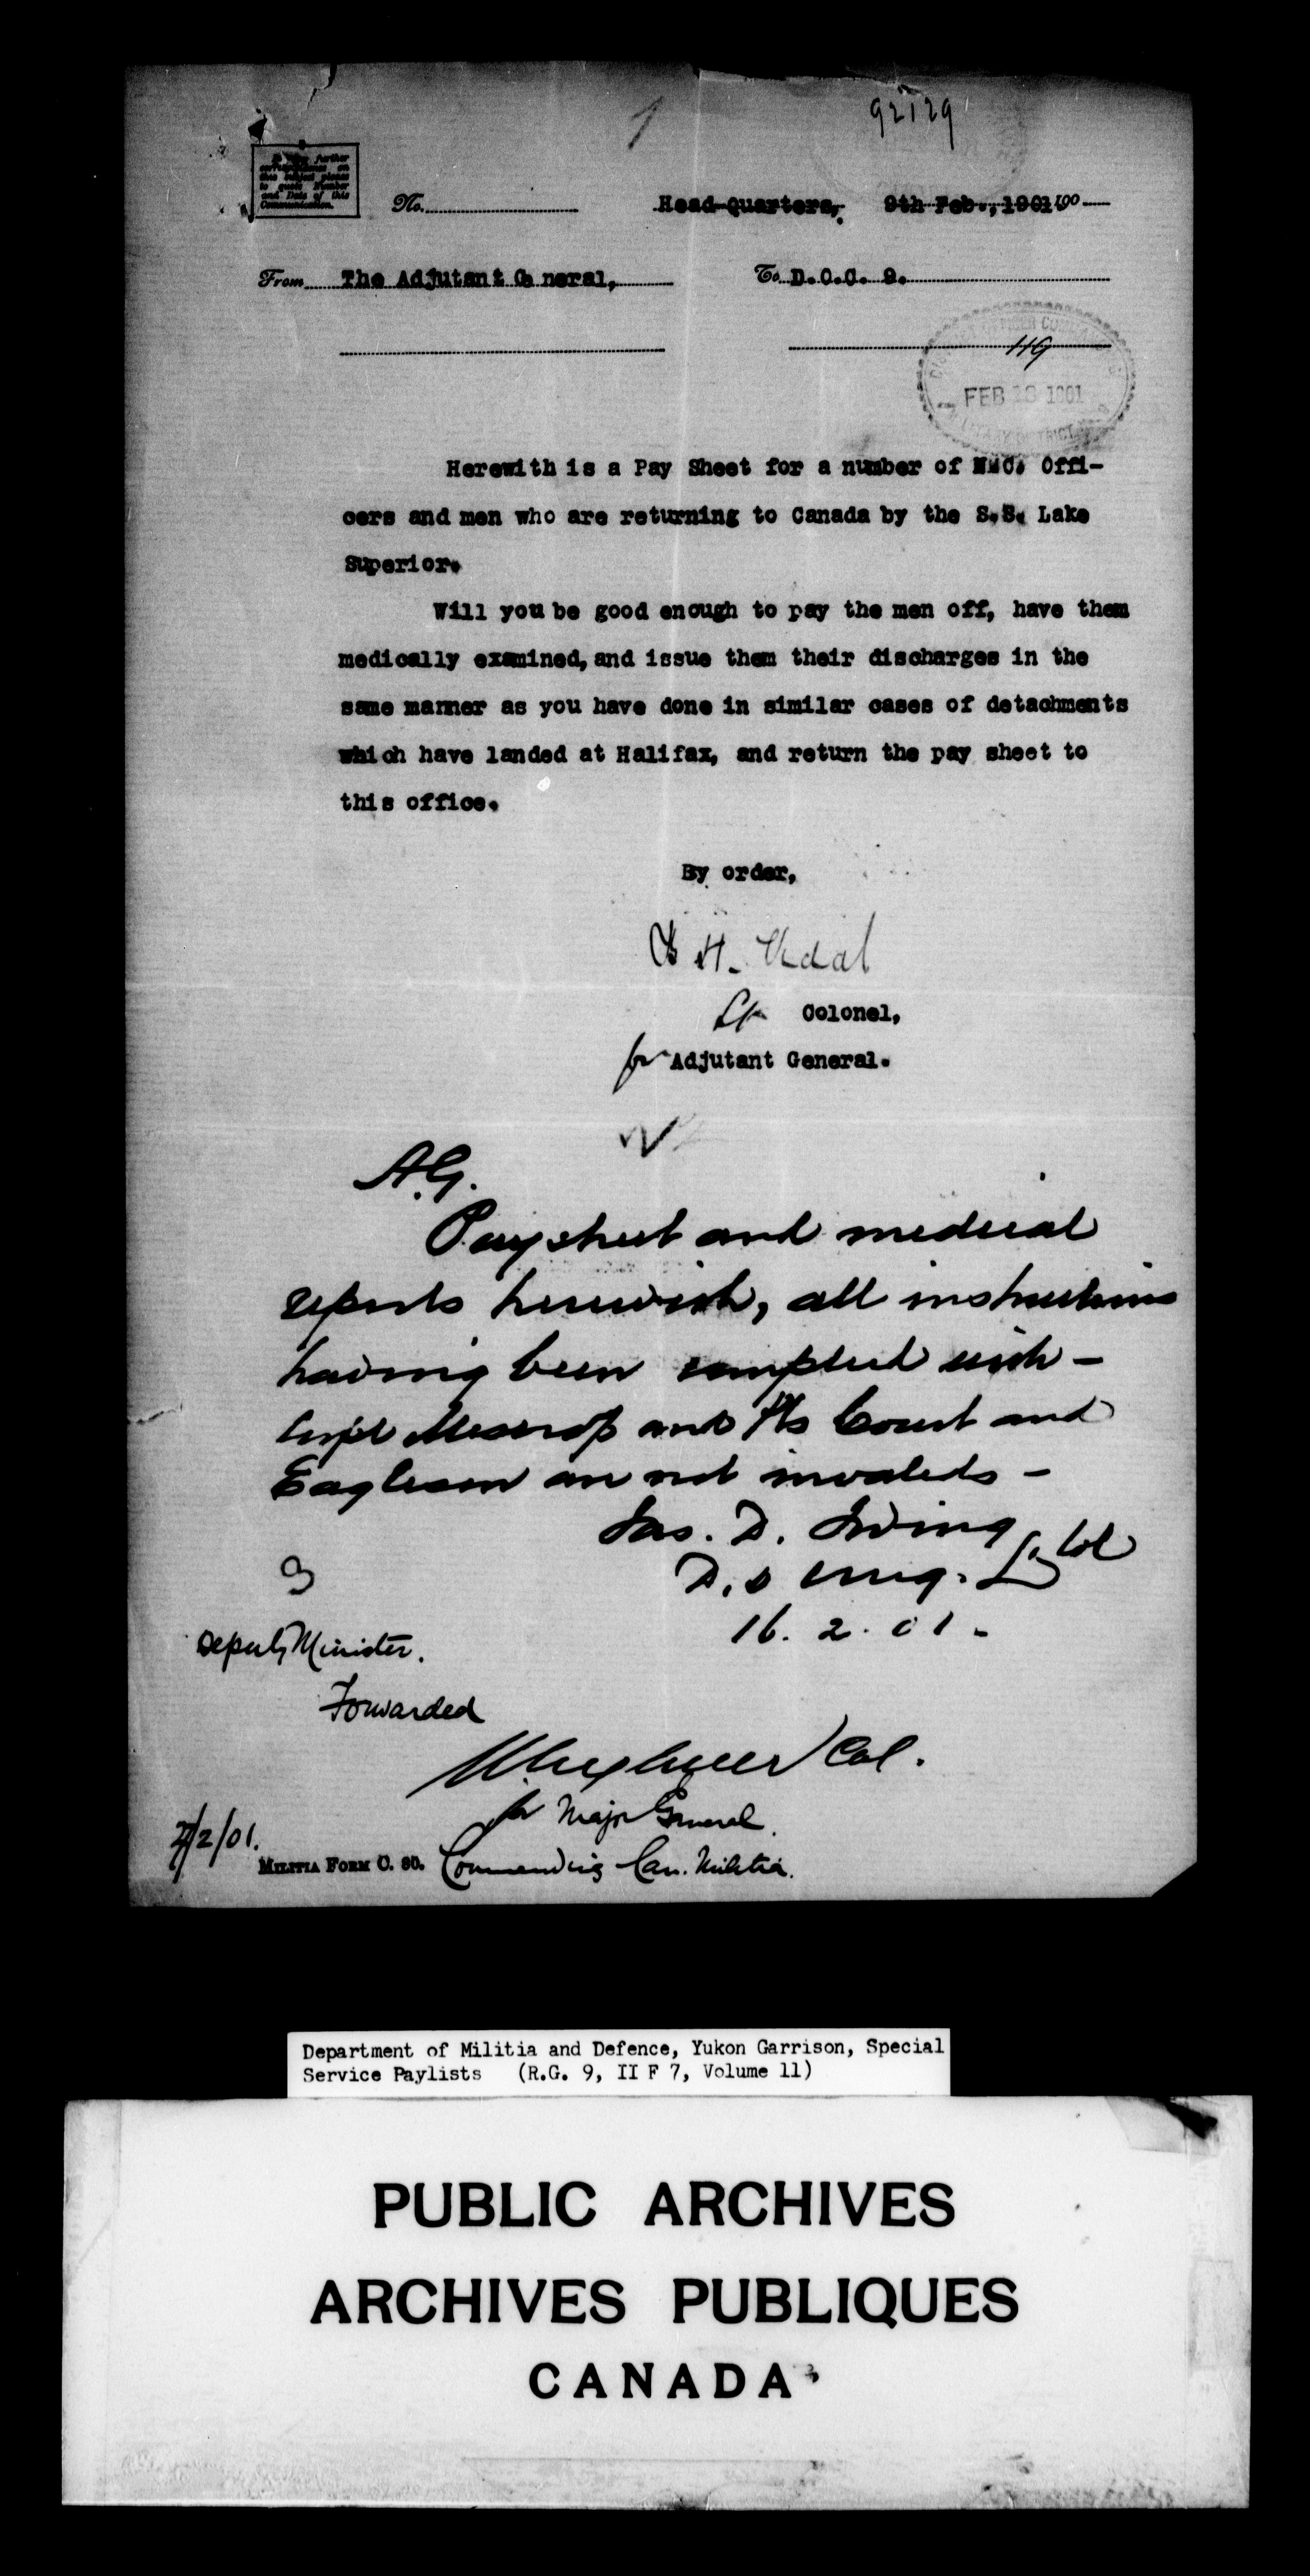 1
92129
In any further
correspondence on
this subject please
to quote Number
and Date of this
Communication.
No. Head-Quarters, 9th Feb., 1901 190
From The Adjutant Ge neral, To D.O.C. 9.
119
DISTRICT OFFICER COMMANDING
FEB 13 1901
MILITARY DISTRICT
Herewith is a Pay Sheet for a number of N.C. Offi-
cers and men who are returning to Canada by the S.S. Lake
Superior.
Will you be good enough to pay the men off, have them
medically examined, and issue them their discharges in the
same manner as you have done in similar cases of detachments
which have landed at Halifax, and return the pay sheet to
this office.
By order,
B H. Vidal
Lt Colonel,
for Adjutant General.
A.G.
Paysheet and medical
reports herewith, all instructions
having been complied with —
Corpl and Pts Court and
Eagleson are not invalids —
Jas. D. Irving
D.S Lt Col
16. 2. 01 -
3
Deputy Minister.
Forwarded
Col.
for Major General
/2/01.
MILITIA FORM C. 80. Commanding Can. Militia.
Department of Militia and Defence, Yukon Garrison, Special
Service Paylists (R.G. 9, II F 7, Volume 11)
PUBLIC ARCHIVES
ARCHIVES PUBLIQUES
CANADA